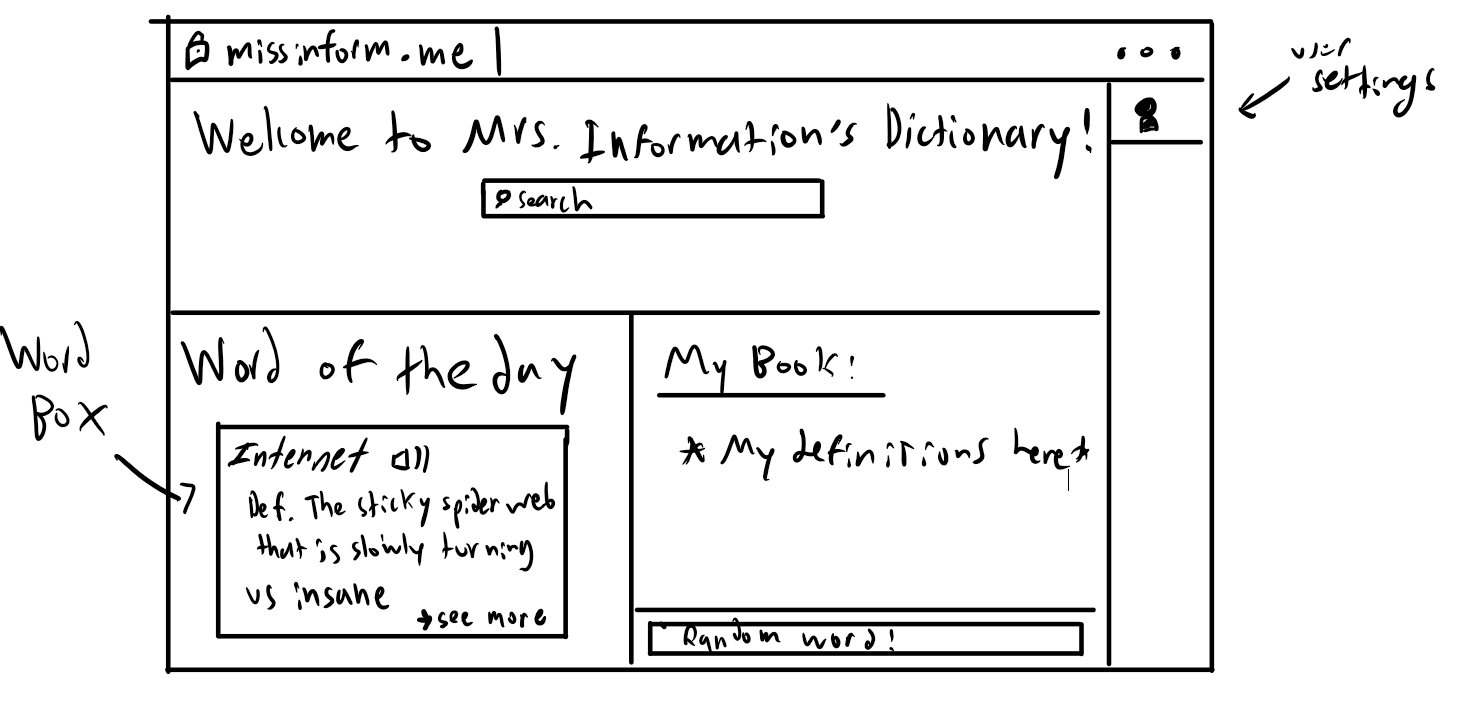 missinform.me
user
settings
Welcome to Mrs. Information's Dictionary!
search
Word
Box
Word of the day
Internet
Def. The sticky spider web
that is slowly turning
us insane
→see more
My Book:
* My definitions here*
Random word!